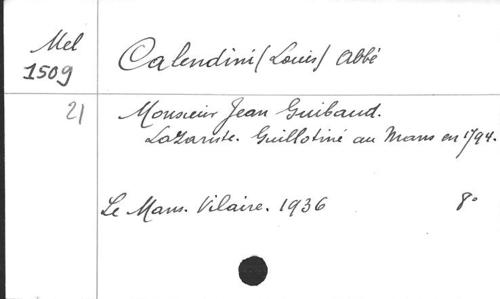 Mel
1509
Calendini (Louis) Abbé
21
Monsieur Jean Guibaud.
Lazariste. Guillotiné au Mans en 1794.
Le Mans. Vilaire. 1936 8°